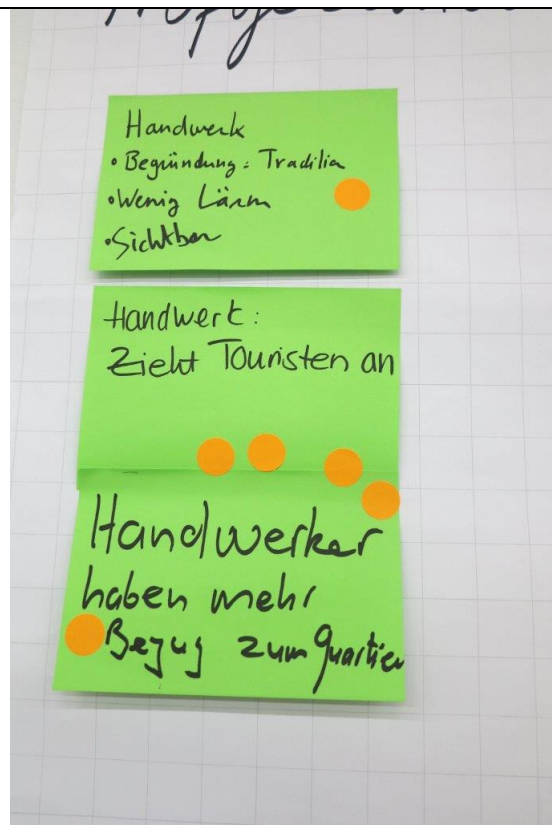 Handwerk
• Begründung: Tradition
• Wenig Lärm
• Sichtbar
Handwerk:
Zieht Touristen an
Handwerker
haben mehr
Bezug zum Quartier